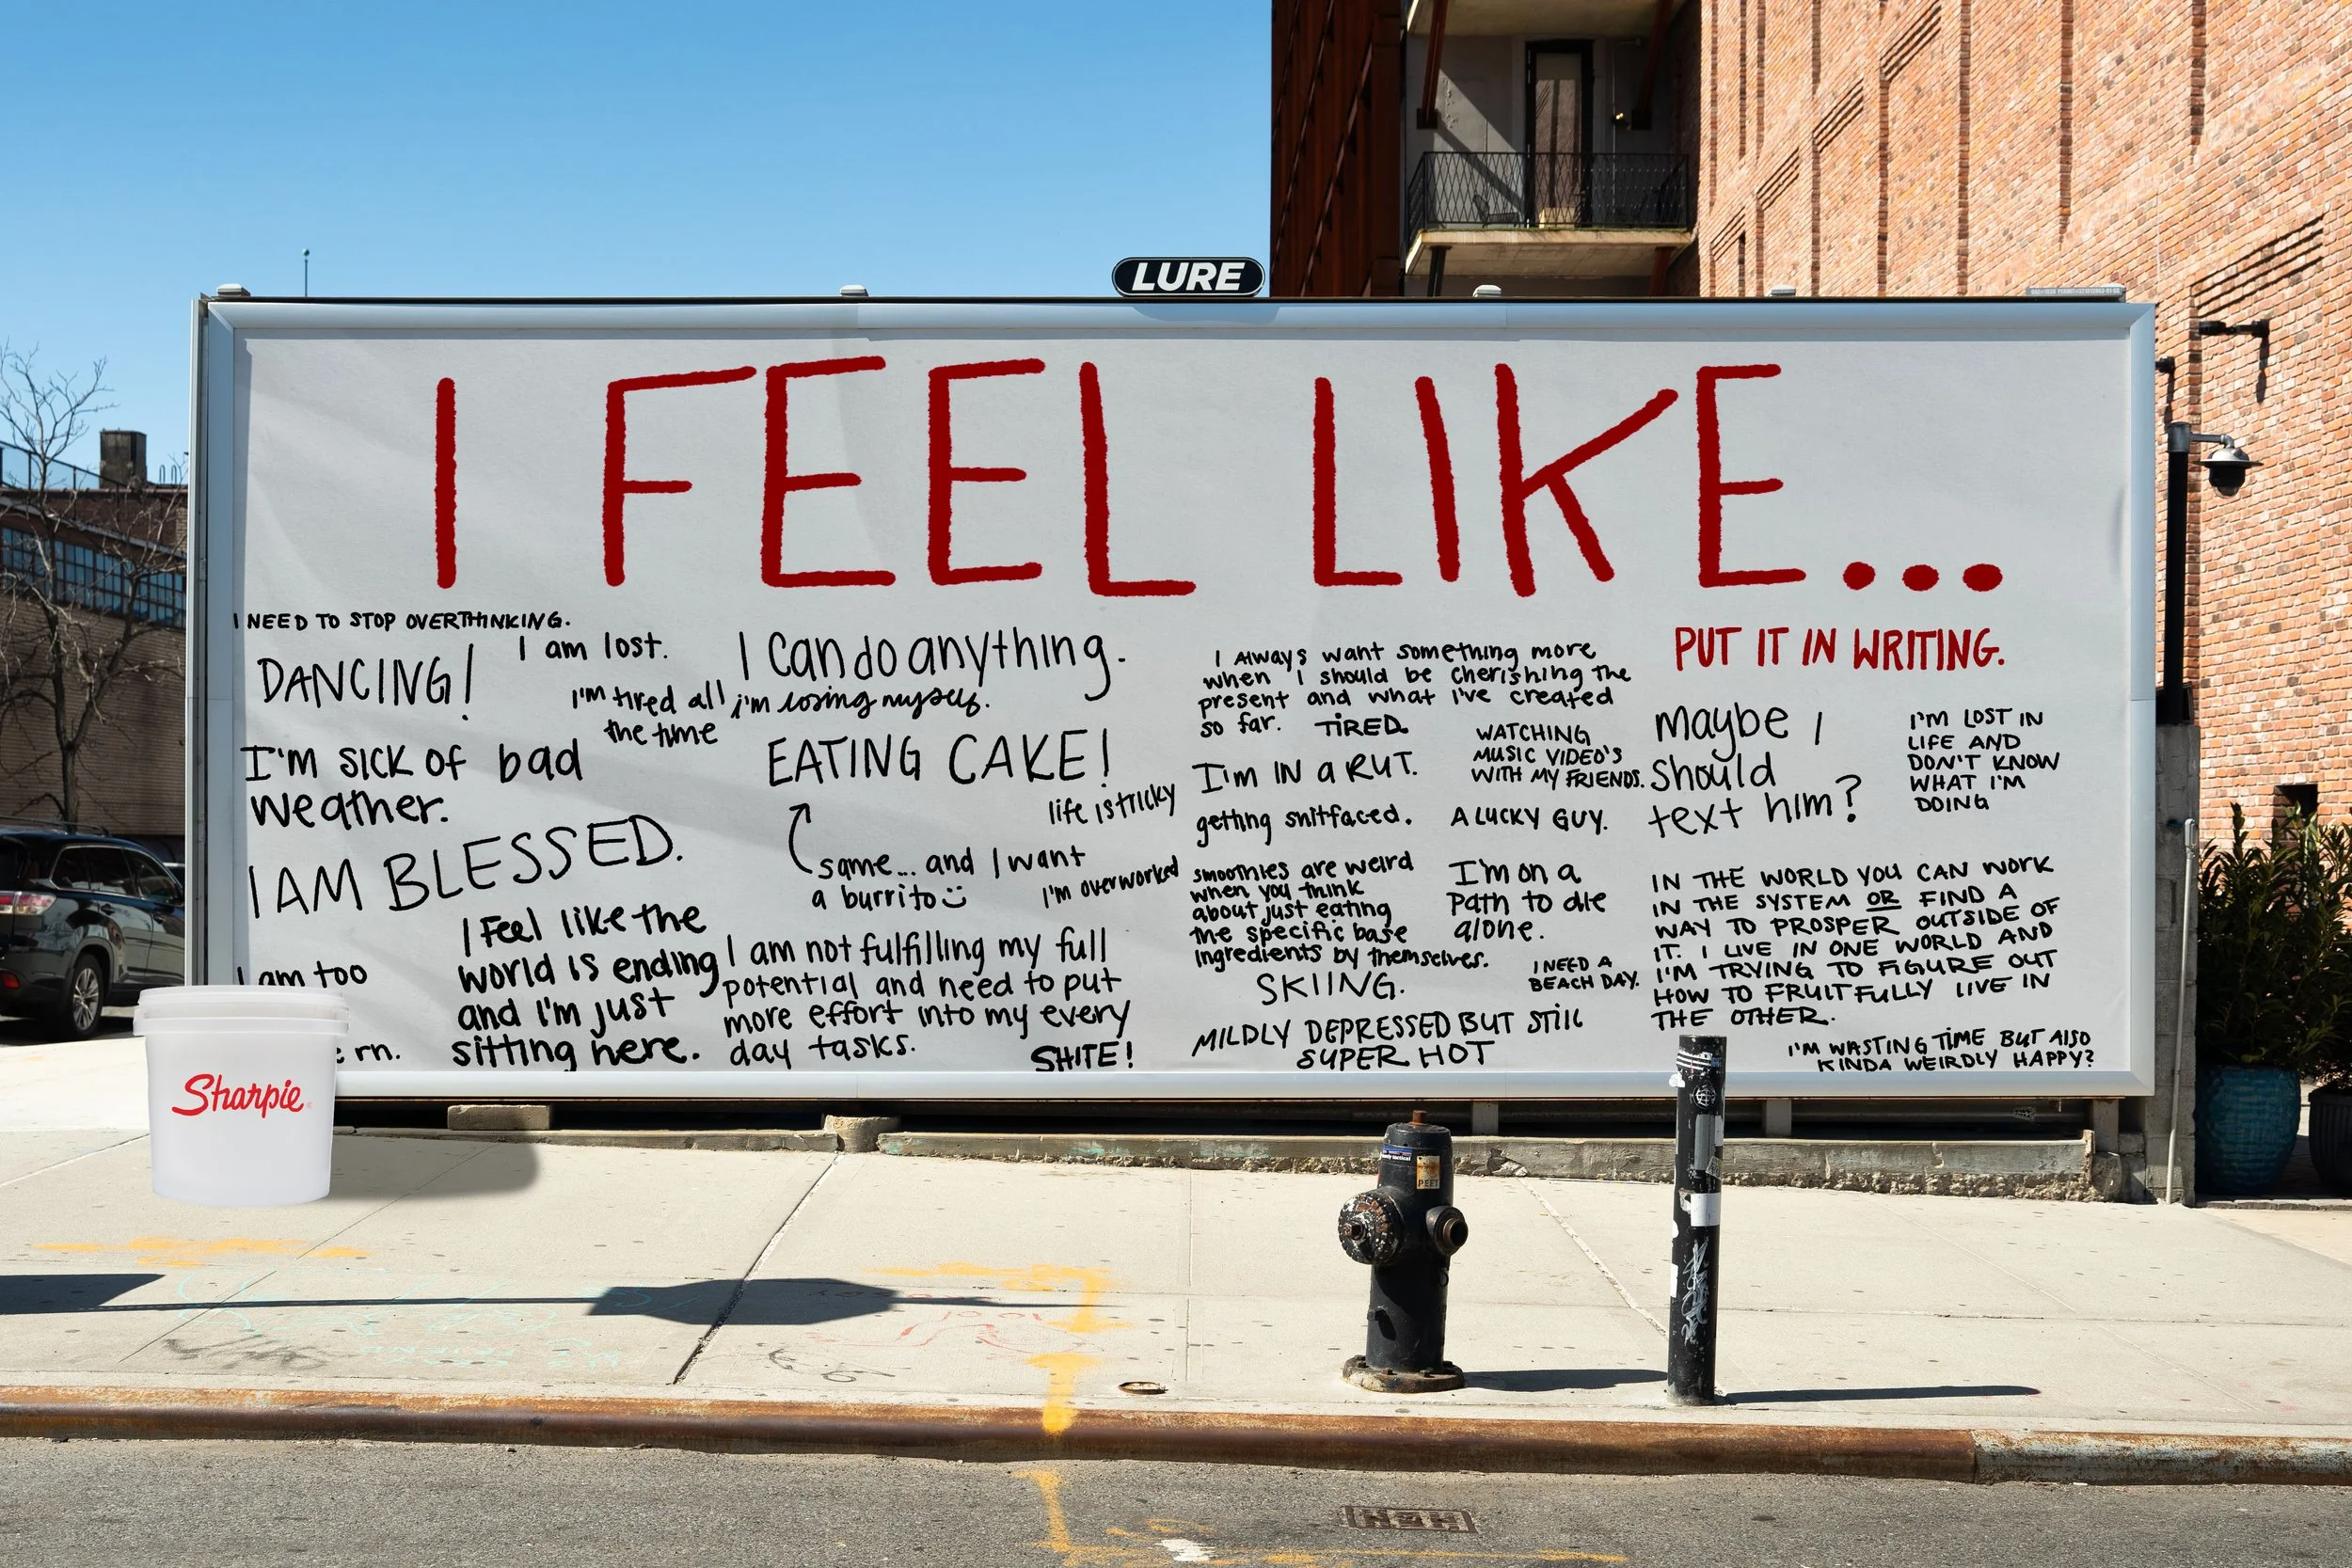 LURE
I FEEL LIKE...
PUT IT IN WRITING.
I NEED TO STOP OVERTHINKING.
DANCING!
I am lost.
I can do anything.
I'm tired all
the time
i'm losing myself.
I'm SICK OF bad
weather.
EATING CAKE!
life is tricky
same... and I want
a burrito
I'm overworked
I AM BLESSED.
I Feel like the
world is ending
and I'm just
sitting here.
I am too
rn.
I am not fulfilling my full
potential and need to put
more effort into my every
day tasks.
SHITE!
I Always want something more
when I should be cherishing the
present and what I've created
so far.
TIRED.
I'm IN a RUT.
WATCHING
MUSIC VIDEO'S
WITH MY FRIENDS.
getting shitfaced.
A LUCKY GUY.
smoothies are weird
when you think
about just eating
the specific base
ingredients by themselves.
I'm on a
Path to die
alone.
SKIING.
I NEED A
BEACH DAY.
MILDLY DEPRESSED BUT STILL
SUPER HOT
maybe I
should
text him?
I'M LOST IN
LIFE AND
DON'T KNOW
WHAT I'M
DOING
IN THE WORLD YOU CAN WORK
IN THE SYSTEM OR FIND A
WAY TO PROSPER OUTSIDE OF
IT. I LIVE IN ONE WORLD AND
I'M TRYING TO FIGURE OUT
HOW TO FRUITFULLY LIVE IN
THE OTHER.
I'M WASTING TIME BUT ALSO
KINDA WEIRDLY HAPPY?
Sharpie
PEET